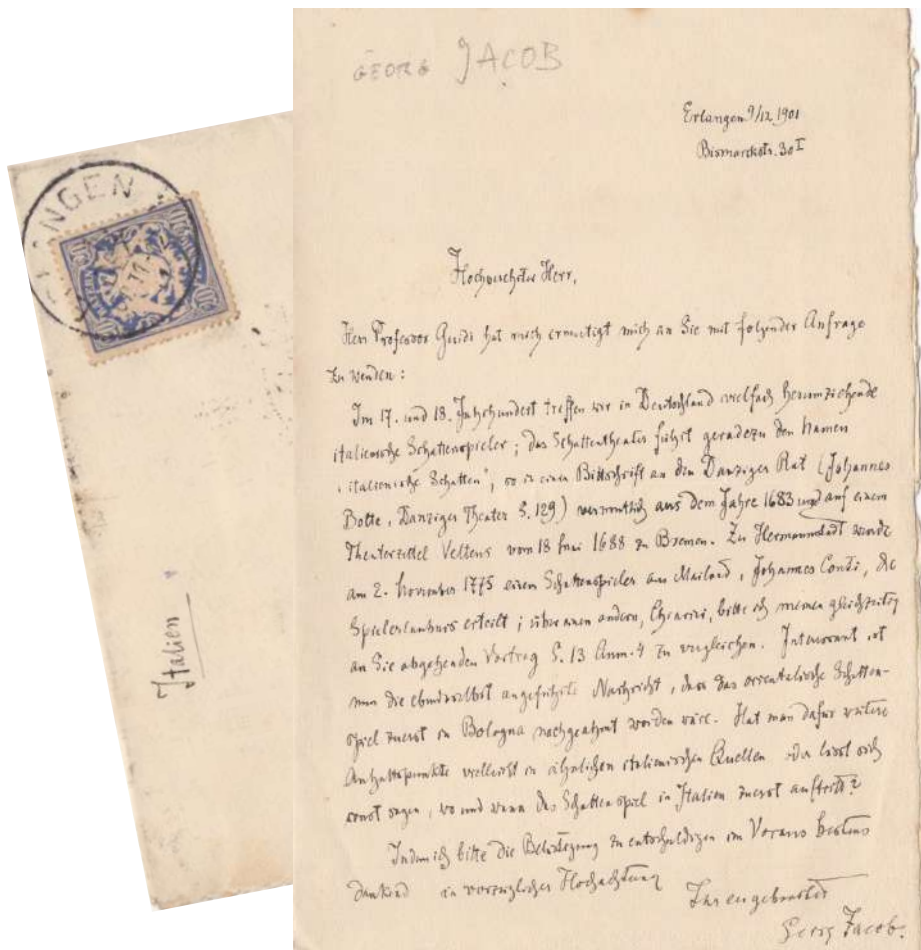 GEORG JACOB
Erlangen 9/12 1901
Bismarckstr. 30 I
Hochverehrter Herr,
Herr Professor Guidi hat mich ermutigt mich an Sie mit folgender Anfrage
zu wenden:
Im 17. und 18. Jahrhundert treffen wir in Deutschland vielfach herumziehende
italienische Schattenspieler; das Schattentheater führt geradezu den Namen
„italienische Schatten", so in einer Bittschrift an den Danziger Rat (Johannes
Bolte, Danziger Theater S. 129) vermutlich aus dem Jahre 1683 und auf einem
Theaterzettel Veltens vom 18 Juni 1688 zu Bremen. Zu Hermannstadt wurde
am 2. November 1775 einem Schattenspieler aus Mailand, Johannes Conti, die
Spielerlaubnis erteilt; über einen andern, Chiarini, bitte ich meinen gleichzeitig
an Sie abgehenden Vortrag S. 13 Anm. 4 zu vergleichen. Interessant ist
nun die ebendaselbst angeführte Nachricht, dass das orientalische Schatten-
spiel zuerst in Bologna nachgeahmt worden wäre. Hat man dafür weitere
Anhaltspunkte vielleicht in ähnlichen italienischen Quellen oder lässt sich
sonst sagen, wo und wann das Schattenspiel in Italien zuerst auftritt?
Indem ich bitte die Belästigung zu entschuldigen im Voraus bestens
dankend in vorzüglicher Hochachtung
Ihr ergebenster
Georg Jacob.
Italien